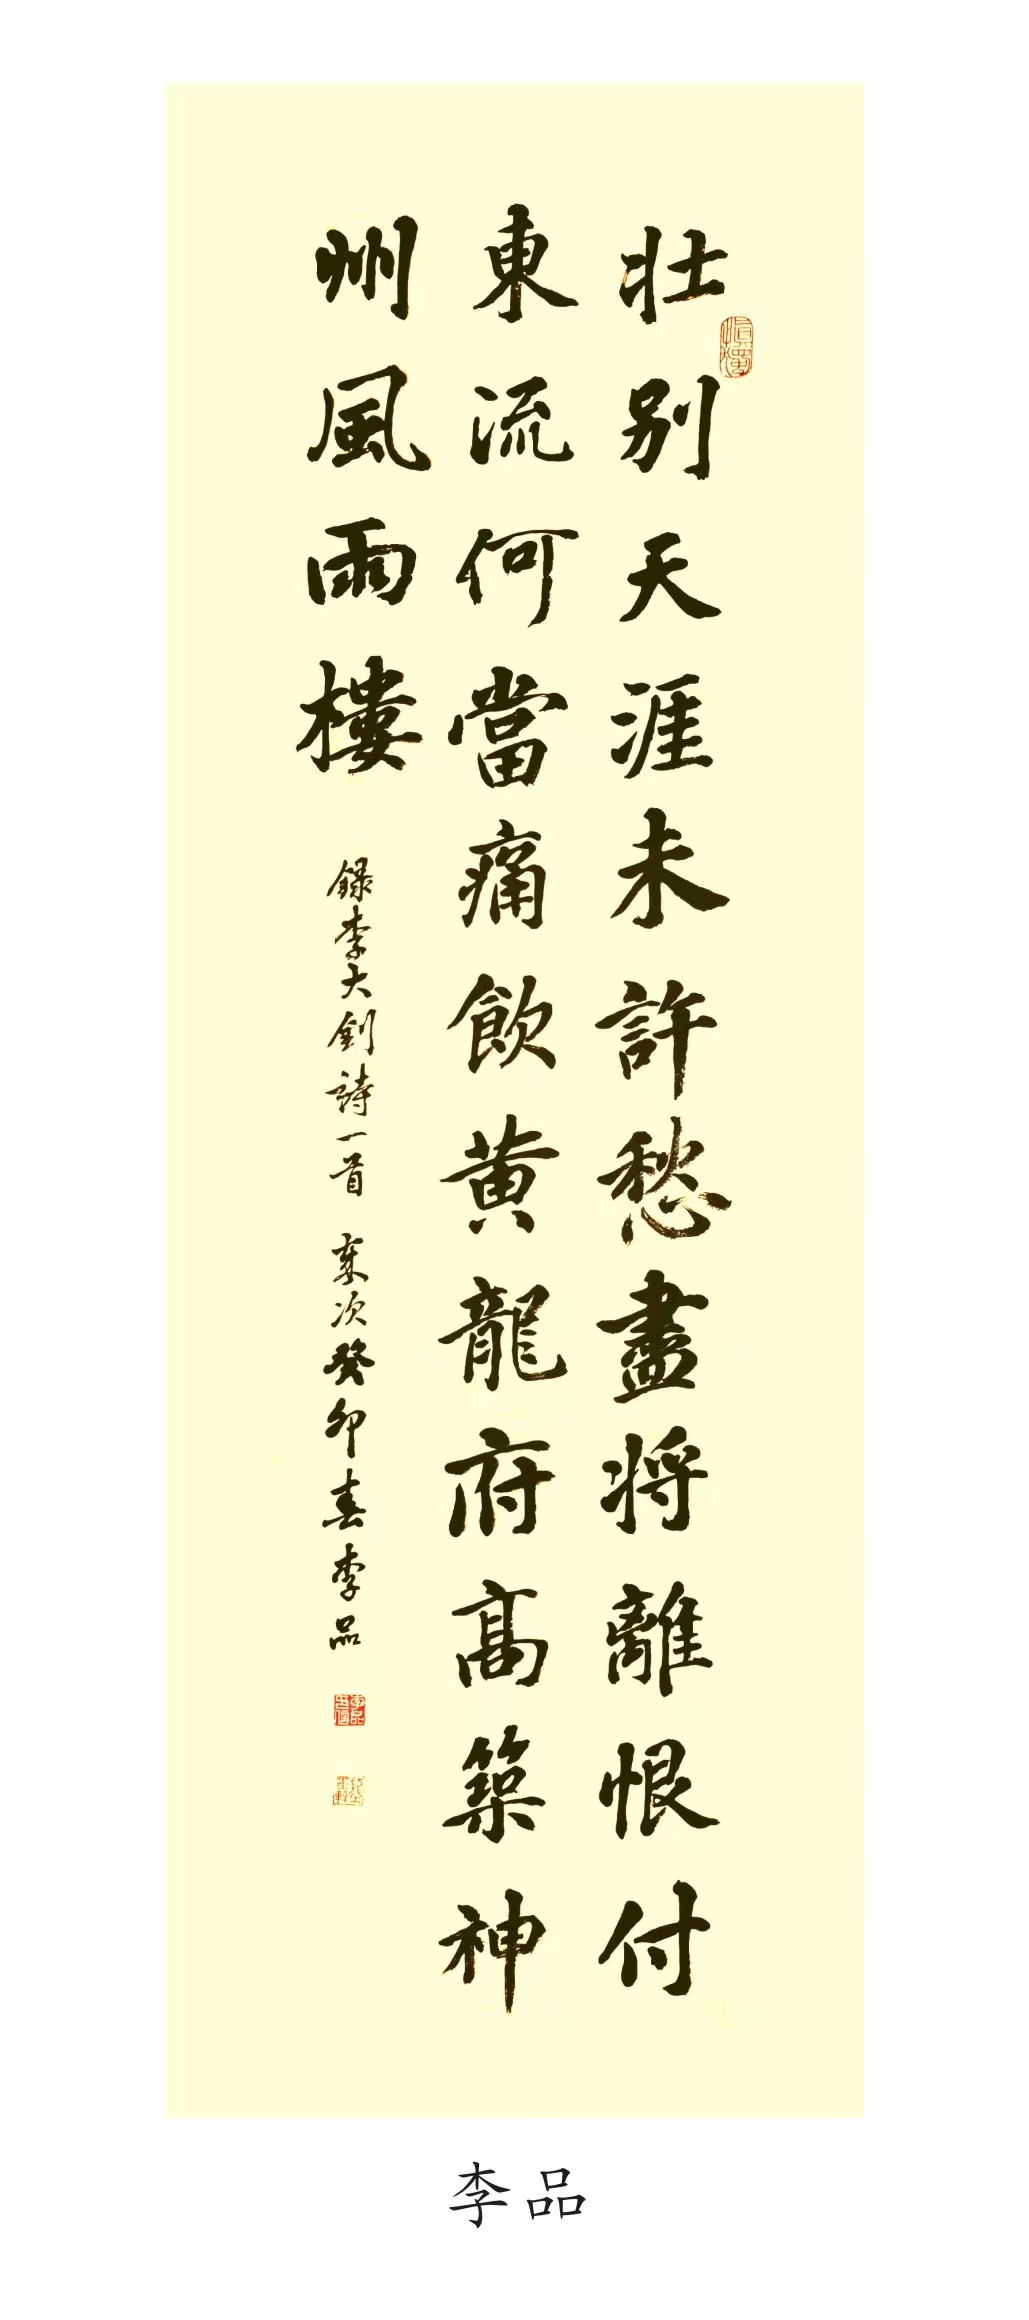 壯別天涯未許愁盡將離恨付
東流何當痛飲黃龍府高築神
州風雨樓
錄李大釗詩一首 歲次癸卯春李品
李品